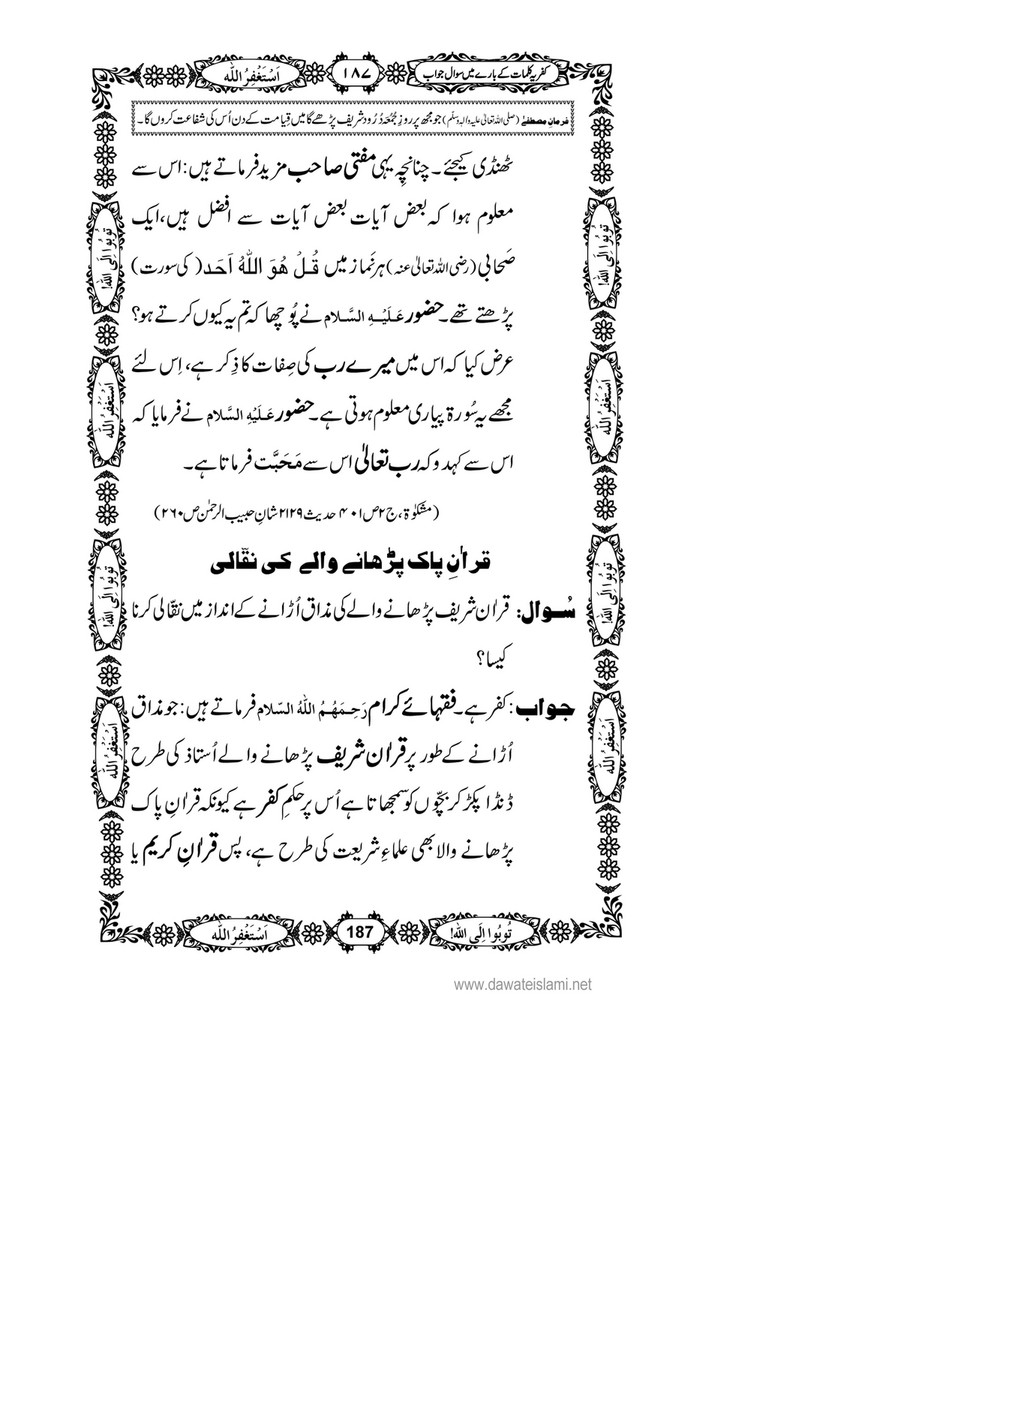 کفریہ کلمات کے بارے میں سوال جواب
١٨٧
اَسْتَغْفِرُ اللہ
فرمانِ مصطفےٰ (صلی اللہ تعالیٰ علیہ والہٖ وسلّم) جو مجھ پر روزِ جُمُعہ دُرُود شریف پڑھے گا میں قِیامت کے دن اُس کی شفاعت کروں گا۔
ٹھنڈی کیجئے۔ چنانچِہ یہی مفتی صاحب مزید فرماتے ہیں: اس سے
معلوم ہوا کہ بعض آیات بعض آیات سے افضل ہیں، ایک
صَحابی (رضی اللہ تعالیٰ عنہ) ہر نَماز میں قُلْ هُوَ اللهُ اَحَد (کی سورت)
پڑھتے تھے۔ حضور عَلَیْہِ السَّلام نے پُوچھا کہ تم یہ کیوں کرتے ہو؟
عرض کیا کہ اس میں میرے رب کی صِفات کا ذِکر ہے، اِس لئے
مجھے یہ سُورۃ پیاری معلوم ہوتی ہے۔ حضور عَلَیْہِ السَّلام نے فرمایا کہ
اس سے کہدو کہ رب تعالیٰ اس سے مَحَبَّت فرماتا ہے۔
(مشکوٰۃ، ج٢ ص٤٠١ حدیث ٢١٢٩ شانِ حبیب الرحمٰن ص٢٦٠)
قراٰنِ پاک پڑھانے والے کی نقّالی
سُوال: قراٰن شریف پڑھانے والے کی مذاق اُڑانے کے انداز میں نقّالی کرنا
کیسا؟
جواب: کفر ہے۔ فقہائے کرام رَحِمَہُمُ اللہُ السّلام فرماتے ہیں: جو مذاق
اُڑانے کے طور پر قراٰن شریف پڑھانے والے اُستاذ کی طرح
ڈنڈا پکڑ کر بچّوں کو سمجھاتا ہے اُس پر حکمِ کفر ہے کیونکہ قراٰنِ پاک
پڑھانے والا بھی علماءِ شریعت کی طرح ہے، پس قراٰنِ کریم یا
تُوبُوا اِلَی اللہ!
اَسْتَغْفِرُ اللہ
تُوبُوا اِلَی اللہ!
اَسْتَغْفِرُ اللہ
تُوبُوا اِلَی اللہ!
اَسْتَغْفِرُ اللہ
تُوبُوا اِلَی اللہ!
اَسْتَغْفِرُ اللہ
تُوبُوا اِلَی اللہ!
187
اَسْتَغْفِرُ اللہ
www.dawateislami.net